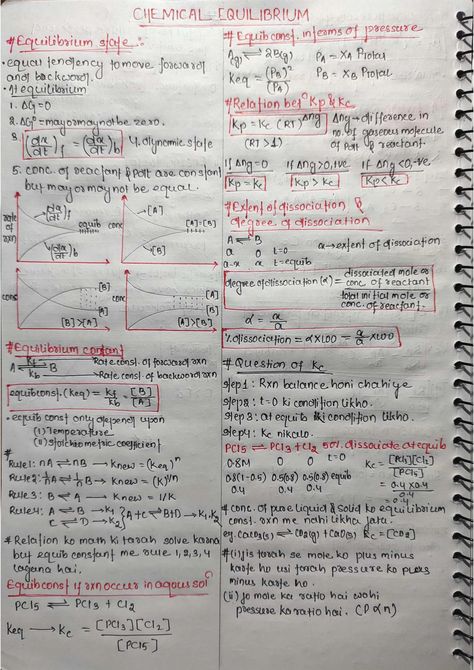 CHEMICAL EQUILIBRIUM
# Equilibrium state :-
• equal tendency to move forward
and backword.
• At equilibrium
1. ΔG=0
2. ΔG°=may or may not be zero.
3. (dx/dt)f = (dx/dt)b 4. dynamic state
5. conc. of reactant & pdt are constant
but may or may not be equal.
rate of rxn
(dx/dt)f
equib
(dx/dt)b
conc
[A]
[A]=[B]
[B]
conc
[B]
[A]
[B]>[A]
[A]
[B]
[A]>[B]
# Equilibrium constant
A ⇌ B
kf
kb
Rate const. of forward rxn
Rate const. of backword rxn
equib const. (Keq) = kf/kb = [B]/[A]
• equib const only depend upon
(i) Temperature
(ii) stoichiometric coefficient
#
Rule1: nA ⇌ nB → Knew = (Keq)^n
Rule2: 1/n A ⇌ 1/n B → Knew = (K)^1/n
Rule3: B ⇌ A → Knew = 1/K
Rule4: A ⇌ B → K1
C ⇌ D → K2
} A+C ⇌ B+D → K1.K2
# Relation ko math ki tarah solve karna
but equib constant me rule 1,2,3,4
lagana hai.
Equib const if rxn occur in aqous sol^n
PCl5 ⇌ PCl3 + Cl2
Keq → Kc = [PCl3][Cl2]/[PCl5]
# Equib const. in terms of pressure
A(g) ⇌ 2B(g) PA = XA Ptotal
Keq = (PB)^n/(PA) PB = XB Ptotal
# Relation bet^n Kp & Kc
Kp = Kc (RT)^Δng
(RT>1)
Δng → difference in
no. of gaseous molecule
of Pdt & reactant.
if Δng=0 if Δng>0,+ve. if Δng<0,-ve.
Kp=Kc Kp>Kc Kp<Kc
# Extent of dissociation &
degree of dissociation
A ⇌ B
a 0 t=0
a-x x t=equib
x → extent of dissociation
degree of dissociation (α) = dissociated mole or conc. of reactant / total initial mole or conc. of reactant.
α = x/a
%dissociation = α×100 = x/a ×100
# Question of Kc
Step1: Rxn balance honi chahiye
Step2: t=0 ki condition likho.
Step3: at equib ki condition likho.
Step4: Kc nikalo.
PCl5 ⇌ PCl3 + Cl2 50% dissociate at equib
0.8M 0 0 t=0
0.8(1-0.5) 0.5(0.8) 0.5(0.8) equib
0.4 0.4 0.4
Kc = [PCl3][Cl2]/[PCl5]
= 0.4×0.4/0.4
= 0.4
# conc. of pure liquid & solid ko equilibrium
const. rxn me nahi likha jata.
eg. CaCO3(s) ⇌ CO2(g) + CaO(s) Kc = [CO2]
# (i) jis tarah se mole ko plus minus
karte ho usi tarah pressure ko plus
minus karte ho.
(ii) Jo mole ka ratio hai wohi
pressure ka ratio hai. (P∝n)